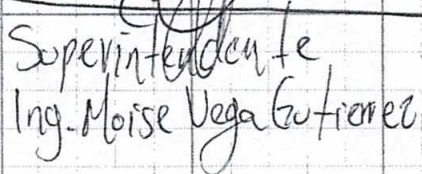 Superintendente
Ing. Moise Vega Gutierrez